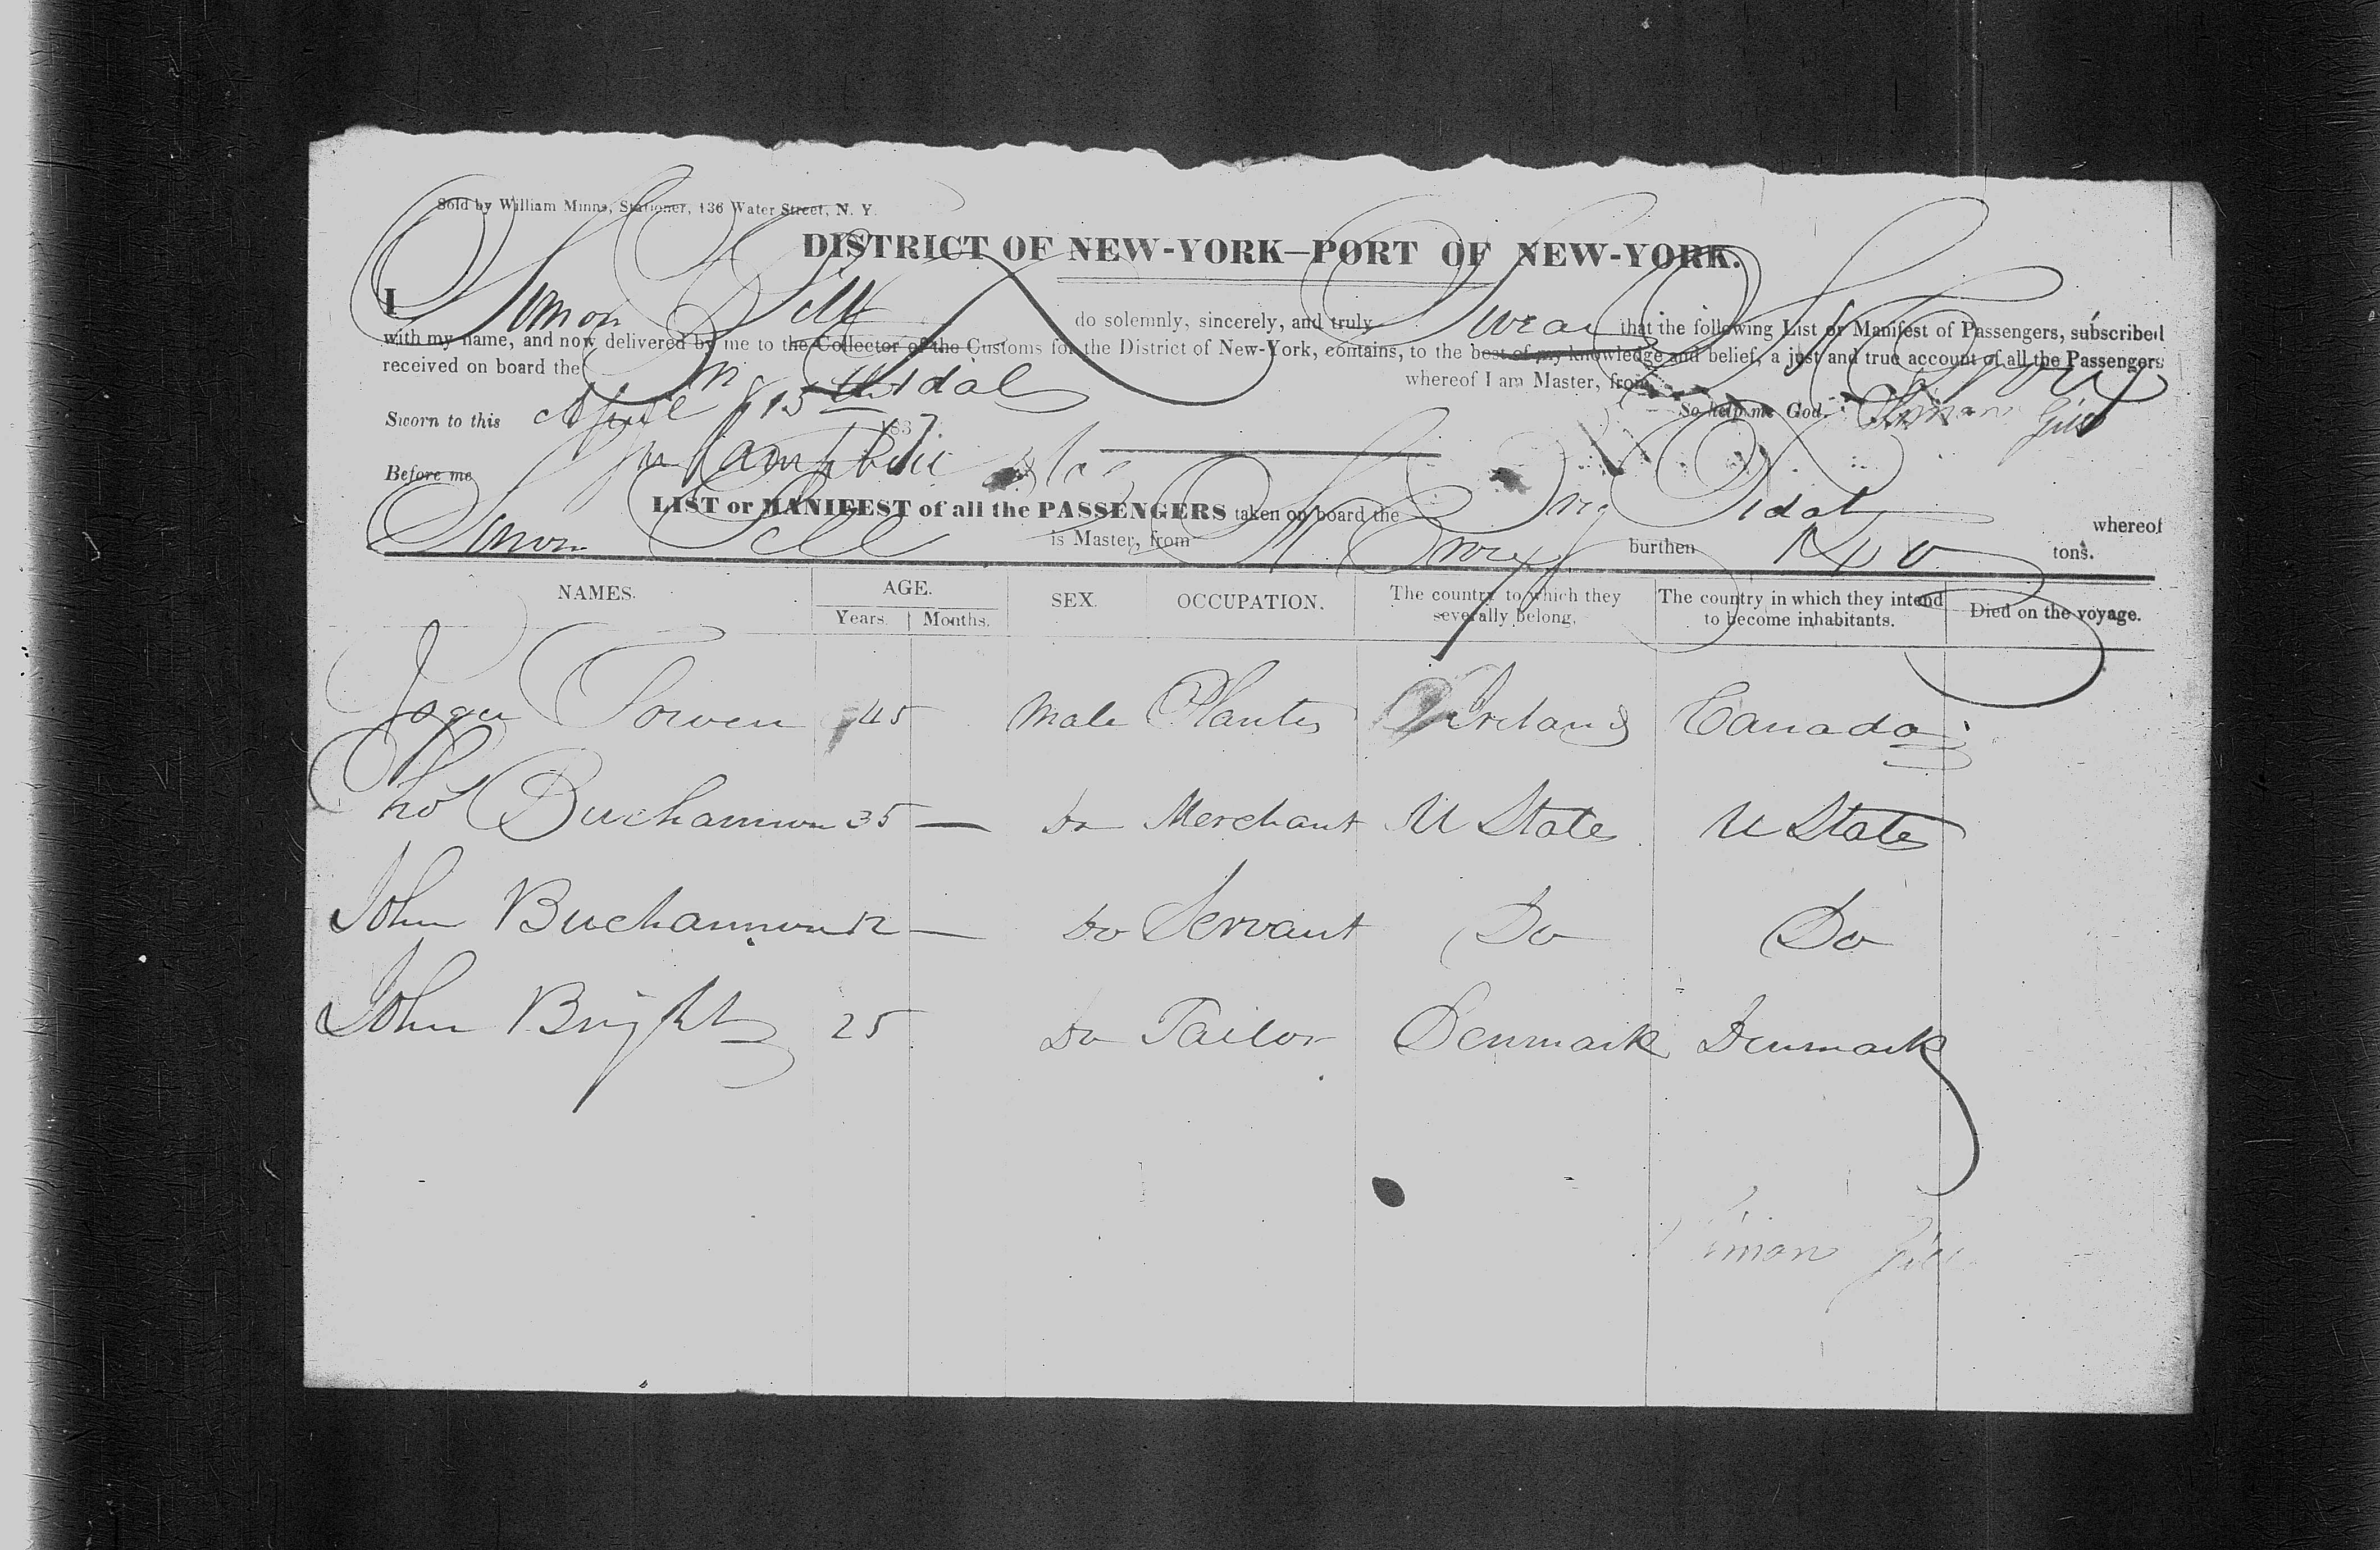 Sold by William Minns, Stationer, 136 Water Street, N. Y.
DISTRICT OF NEW-YORK—PORT OF NEW-YORK.
I Simon Gill do solemnly, sincerely, and truly Swear that the following List or Manifest of Passengers, subscribed
with my name, and now delivered by me to the Collector of the Customs for the District of New-York, contains, to the best of my knowledge and belief, a just and true account of all the Passengers
received on board the whereof I am Master, from
So help me God. Simon Gill
Sworn to this April 15th 1837
Before me
LIST or MANIFEST of all the PASSENGERS taken on board the Brig whereof
Simon Gill is Master, from St Croix burthen tons.
NAMES. AGE. SEX. OCCUPATION. The country to which they severally belong. The country in which they intend to become inhabitants. Died on the voyage.
Years. Months.
45 Male Planter Ireland Canada
Tho Buchannon 35 — Do Merchant U State U States
John Buchannon 12 — Do Servant Do Do
John Bright 25 Do Tailor Denmark Denmark
Simon Gill